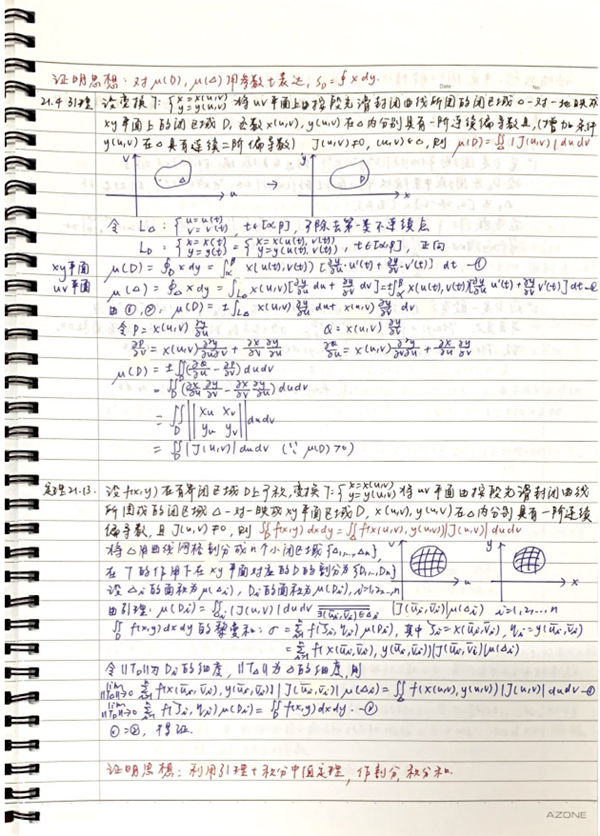 证明思想:对μ(D), μ(Δ)用参数t表达, S_D=∮xdy.
Date No
21.4 引理 设变换T:{x=x(u,v) y=y(u,v) 将uv平面上由按段光滑封闭曲线所围的闭区域Δ一对一地映成
xy平面上的闭区域D, 函数x(u,v), y(u,v)在Δ内分别具有一阶连续偏导数且,(增加条件
y(u,v)在Δ具有连续二阶偏导数) J(u,v)≠0, (u,v)∈Δ, 则 μ(D)=∬_Δ|J(u,v)|dudv
v Δ u → y D x
令 L_Δ: {u=u(t) v=v(t), t∈[α,β], 了除去第一类不连续点
L_D: {x=x(t) y=y(t) = {x=x(u(t),v(t)) y=y(u(t),v(t)), t∈[α,β], 正向
xy平面 μ(D)=∮_D xdy=∫_α^β x(u(t),v(t))[∂y/∂u·u'(t)+∂y/∂v·v'(t)]dt -①
uv平面 μ(Δ)=∮_Δ xdy=∫_{L_Δ} x(u,v)[∂y/∂u du+∂y/∂v dv]=±∫_α^β x(u(t),v(t))[∂y/∂u u'(t)+∂y/∂v v'(t)]dt-②
由①,②, μ(D)=±∫_{L_Δ} x(u,v)∂y/∂u du+x(u,v)∂y/∂v dv
令P=x(u,v)∂y/∂u Q=x(u,v)∂y/∂v
∂P/∂v=x(u,v)∂²y/∂u∂v+∂x/∂v ∂y/∂u ∂Q/∂u=x(u,v)∂²y/∂v∂u+∂x/∂u ∂y/∂v
μ(D)=±∬_D(∂Q/∂u-∂P/∂v)dudv
=∬_D(∂x/∂u ∂y/∂v-∂x/∂v ∂y/∂u)dudv
=∬_D||x_u x_v y_u y_v||dudv
=∬_D|J(u,v)|dudv (∵μ(D)>0)
定理21.13. 设f(x,y)在有界闭区域D上可积, 变换T:{x=x(u,v) y=y(u,v) 将uv平面由按段光滑封闭曲线
所围成的闭区域Δ一对一映成xy平面闭区域D, x(u,v), y(u,v)在Δ内分别具有一阶连续
偏导数, 且J(u,v)≠0, 则∬_D f(x,y)dxdy=∬_Δ f(x(u,v),y(u,v))|J(u,v)|dudv
将Δ用曲线网格划分成n个小闭区域{Δ₁,…,Δₙ},
在T的作用下在xy平面对应的D的划分为{D₁,…Dₙ}
设Δᵢ的面积为μ(Δᵢ), Dᵢ的面积为μ(Dᵢ), i=1,2,…,n
v u y x
由引理. μ(Dᵢ)=∬_{Δᵢ}|J(u,v)|dudv ∃(ūᵢ,v̄ᵢ)∈Δᵢ |J(ūᵢ,v̄ᵢ)|μ(Δᵢ) i=1,2,…n
∬_D f(x,y)dxdy的黎曼和: σ=Σ_{i=1}^n f(ξᵢ,ηᵢ)μ(Dᵢ), 其中ξᵢ=x(ūᵢ,v̄ᵢ), ηᵢ=y(ūᵢ,v̄ᵢ)
=Σ_{i=1}^n f(x(ūᵢ,v̄ᵢ),y(ūᵢ,v̄ᵢ))|J(ūᵢ,v̄ᵢ)|μ(Δᵢ)
令||T_D||为Dᵢ的细度, ||T_Δ||为Δ的细度, 则
lim_{||T_Δ||→0} Σ_{i=1}^n f(x(ūᵢ,v̄ᵢ),y(ūᵢ,v̄ᵢ))|J(ūᵢ,v̄ᵢ)|μ(Δᵢ)=∬_Δ f(x(u,v),y(u,v))|J(u,v)|dudv-①
lim_{||T_D||→0} Σ_{i=1}^n f(ξᵢ,ηᵢ)μ(Dᵢ)=∬_D f(x,y)dxdy.-②
①=②, 得证.
证明思想:利用引理+积分中值定理, 作割分, 积分和.
AZONE